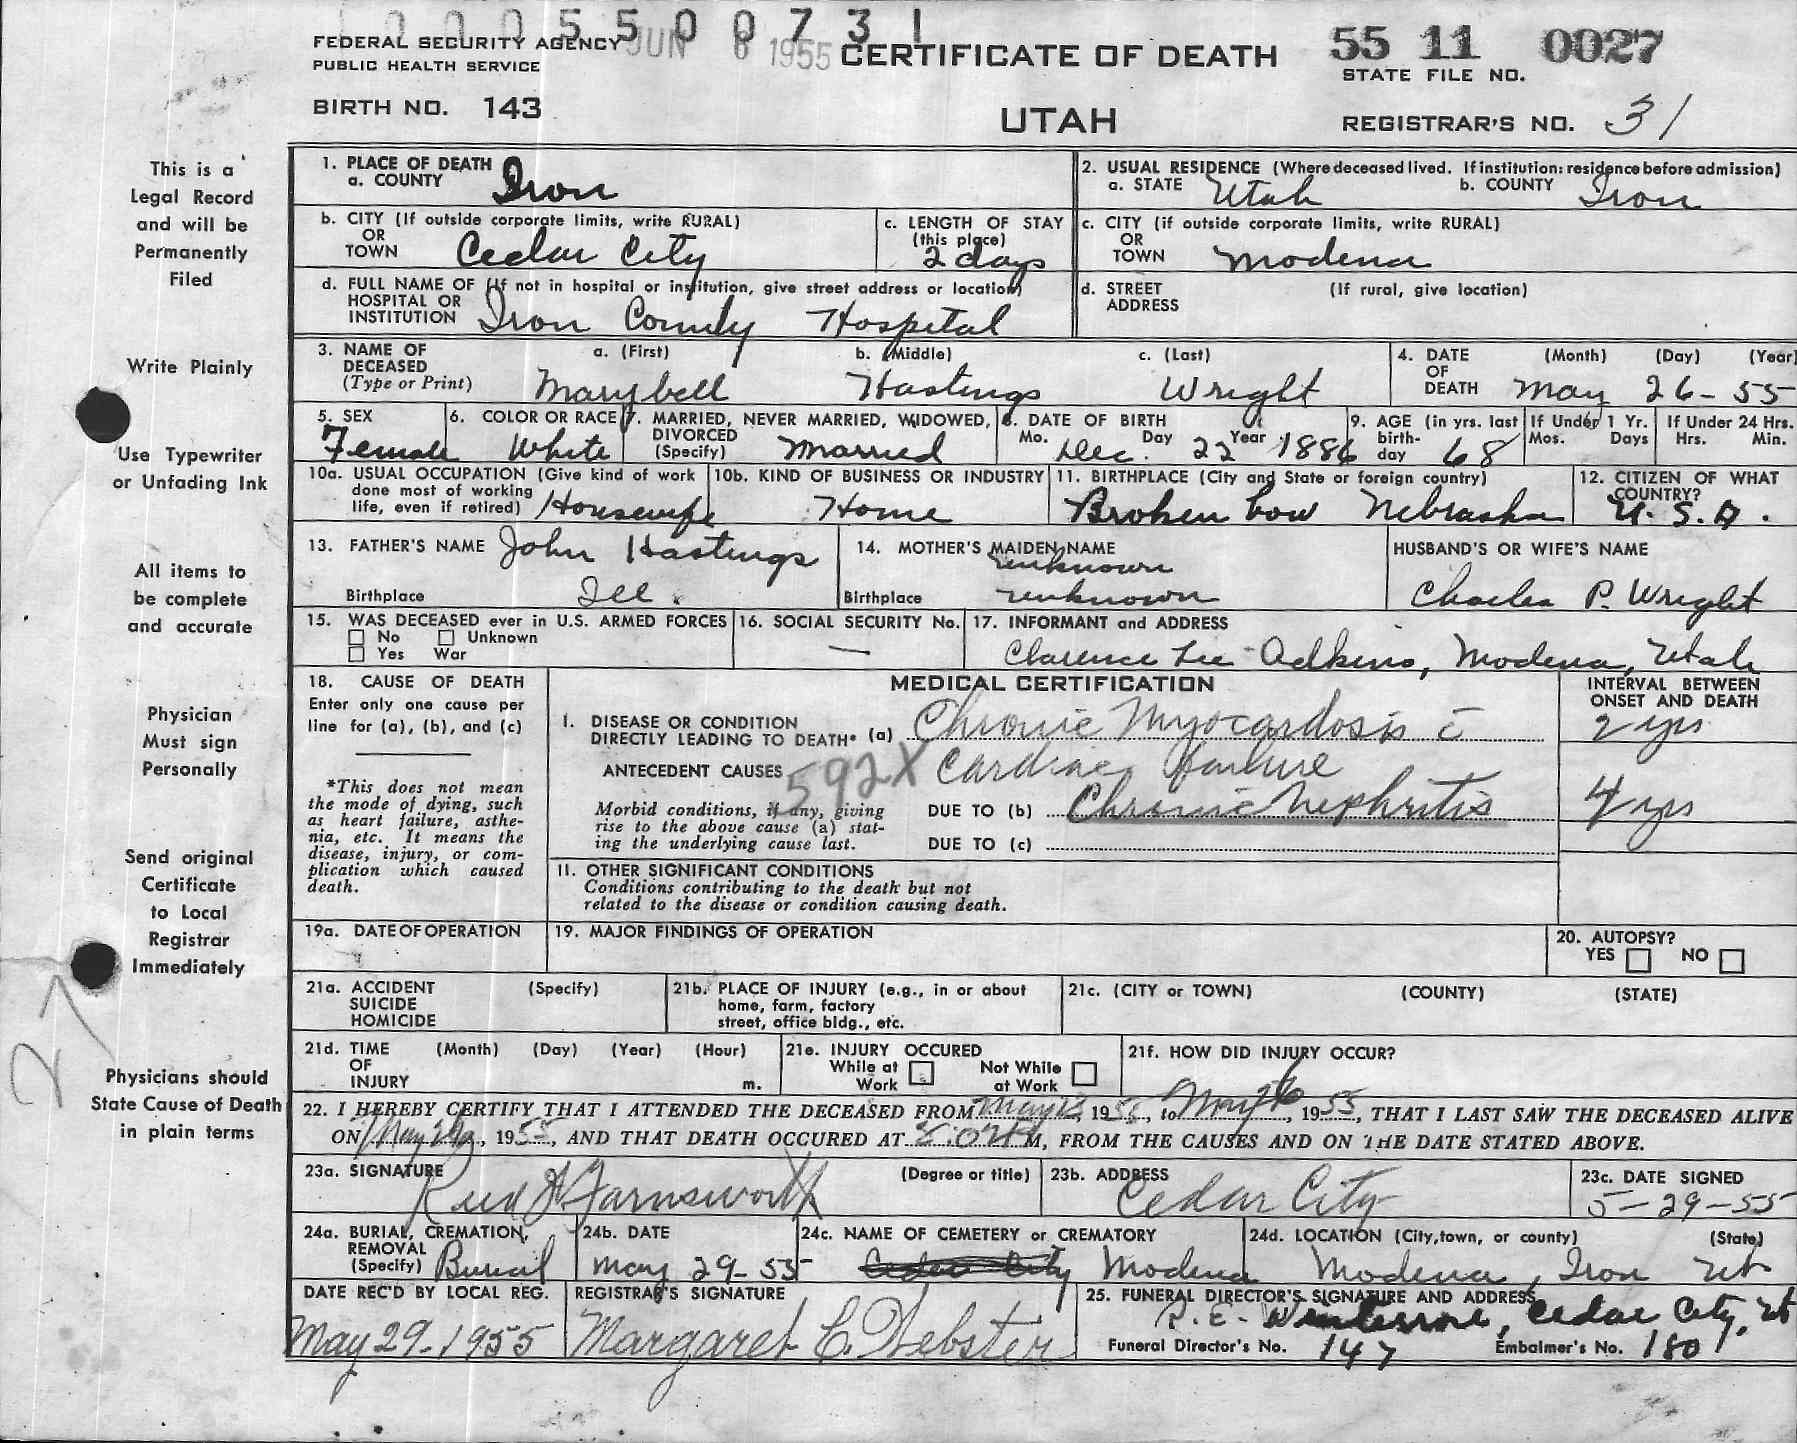 1000550073 1
FEDERAL SECURITY AGENCY JUN 8 1955 CERTIFICATE OF DEATH 55 11 0027
PUBLIC HEALTH SERVICE STATE FILE NO.
BIRTH NO. 143 UTAH REGISTRAR'S NO. 31
This is a
Legal Record
and will be
Permanently
Filed
Write Plainly
Use Typewriter
or Unfading Ink
All items to
be complete
and accurate
Physician
Must sign
Personally
Send original
Certificate
to Local
Registrar
Immediately
27
Physicians should
State Cause of Death
in plain terms
1. PLACE OF DEATH
a. COUNTY Iron
2. USUAL RESIDENCE (Where deceased lived. If institution: residence before admission)
a. STATE Utah b. COUNTY Iron
b. CITY (If outside corporate limits, write RURAL)
OR
TOWN Cedar City
c. LENGTH OF STAY
(this place)
2 days
c. CITY (if outside corporate limits, write RURAL)
OR
TOWN Modena
d. FULL NAME OF (If not in hospital or institution, give street address or location)
HOSPITAL OR
INSTITUTION Iron County Hospital
d. STREET (If rural, give location)
ADDRESS
3. NAME OF a. (First) b. (Middle) c. (Last)
DECEASED
(Type or Print) Marybell Hastings Wright
4. DATE (Month) (Day) (Year)
OF
DEATH May 26-55
5. SEX
Female
6. COLOR OR RACE
White
7. MARRIED, NEVER MARRIED, WIDOWED,
DIVORCED
(Specify) Married
8. DATE OF BIRTH
Mo. Dec. Day 22 Year 1886
9. AGE (in yrs. last
birth-
day 68
If Under 1 Yr.
Mos. Days
If Under 24 Hrs.
Hrs. Min.
10a. USUAL OCCUPATION (Give kind of work
done most of working
life, even if retired) Housewife
10b. KIND OF BUSINESS OR INDUSTRY
Home
11. BIRTHPLACE (City and State or foreign country)
Broken bow Nebraska
12. CITIZEN OF WHAT
COUNTRY?
U.S.A.
13. FATHER'S NAME John Hastings
Birthplace Ill.
14. MOTHER'S MAIDEN NAME
unknown
Birthplace unknown
HUSBAND'S OR WIFE'S NAME
Charles P. Wright
15. WAS DECEASED ever in U.S. ARMED FORCES
No Unknown
Yes War
16. SOCIAL SECURITY No.
—
17. INFORMANT and ADDRESS
Clarence Lee Adkins, Modena, Utah
18. CAUSE OF DEATH
Enter only one cause per
line for (a), (b), and (c)
*This does not mean
the mode of dying, such
as heart failure, asthe-
nia, etc. It means the
disease, injury, or com-
plication which caused
death.
MEDICAL CERTIFICATION
INTERVAL BETWEEN
ONSET AND DEATH
I. DISEASE OR CONDITION
DIRECTLY LEADING TO DEATH* (a) Chronic Myocardosis c̄ 2 yrs
ANTECEDENT CAUSES 592X Cardiac failure
Morbid conditions, if any, giving
rise to the above cause (a) stat-
ing the underlying cause last.
DUE TO (b) Chronic Nephritis 4 yrs
DUE TO (c)
11. OTHER SIGNIFICANT CONDITIONS
Conditions contributing to the death but not
related to the disease or condition causing death.
19a. DATE OF OPERATION
19. MAJOR FINDINGS OF OPERATION
20. AUTOPSY?
YES NO
21a. ACCIDENT (Specify)
SUICIDE
HOMICIDE
21b. PLACE OF INJURY (e.g., in or about
home, farm, factory
street, office bldg., etc.
21c. (CITY or TOWN) (COUNTY) (STATE)
21d. TIME (Month) (Day) (Year) (Hour)
OF
INJURY m.
21e. INJURY OCCURED
While at Not While
Work at Work
21f. HOW DID INJURY OCCUR?
22. I HEREBY CERTIFY THAT I ATTENDED THE DECEASED FROM May 12, 1955, to May 26, 1955, THAT I LAST SAW THE DECEASED ALIVE
ON May 26, 1955, AND THAT DEATH OCCURED AT M, FROM THE CAUSES AND ON THE DATE STATED ABOVE.
23a. SIGNATURE (Degree or title)
Farnsworth
23b. ADDRESS
Cedar City
23c. DATE SIGNED
5-29-55
24a. BURIAL, CREMATION,
REMOVAL
(Specify) Burial
24b. DATE
May 29-55
24c. NAME OF CEMETERY or CREMATORY
Cedar City Modena
24d. LOCATION (City, town, or county) (State)
Modena, Iron Ut
DATE REC'D BY LOCAL REG.
May 29-1955
REGISTRAR'S SIGNATURE
Margaret C. Webster
25. FUNERAL DIRECTOR'S SIGNATURE AND ADDRESS
R.E. Cedar City, Ut
Funeral Director's No. 147 Embalmer's No. 180